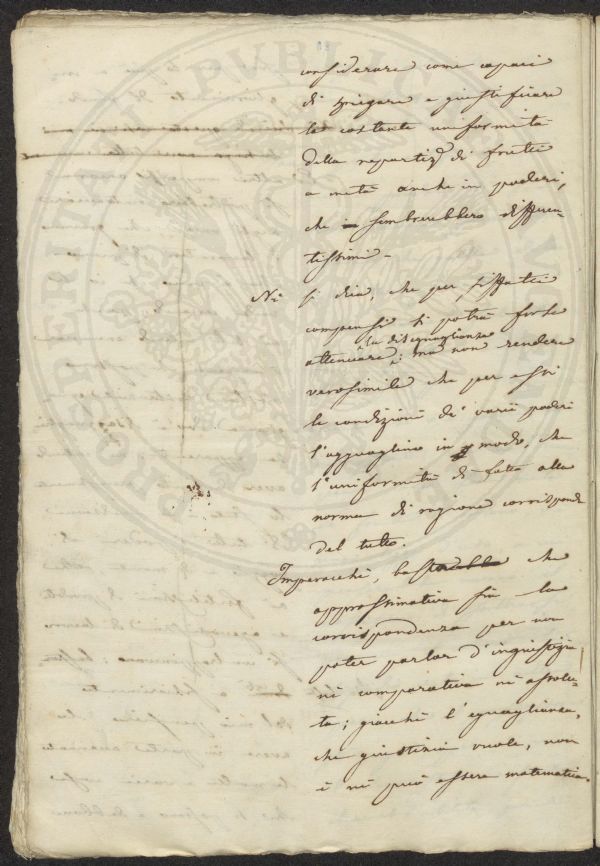 considerare come capaci
di spiegare e giustificare
la costante uniformità
della repartizᵉ di frutti
a metà anche in poderi,
che sembrerebbero differen-
tissimi -
Nè si dica, che per siffatti
compensi si potrà forse
attenuare la diseguaglianza; ma non rendere
verosimile che per essi
le condizioni di varii poderi
s'agguaglino in modo, che
l'uniformità di fatto alla
norma di ragione corrisponda
del tutto.
Imperocchè, basta che
approssimativa sia la
corrispondenza per non
poter parlar d'ingiustizia
nè comparativa nè assolu-
ta; giacchè l'eguaglianza,
che giustizia vuole, non
è nè può essere matematica.
PROSPERITATI PVBLICAE